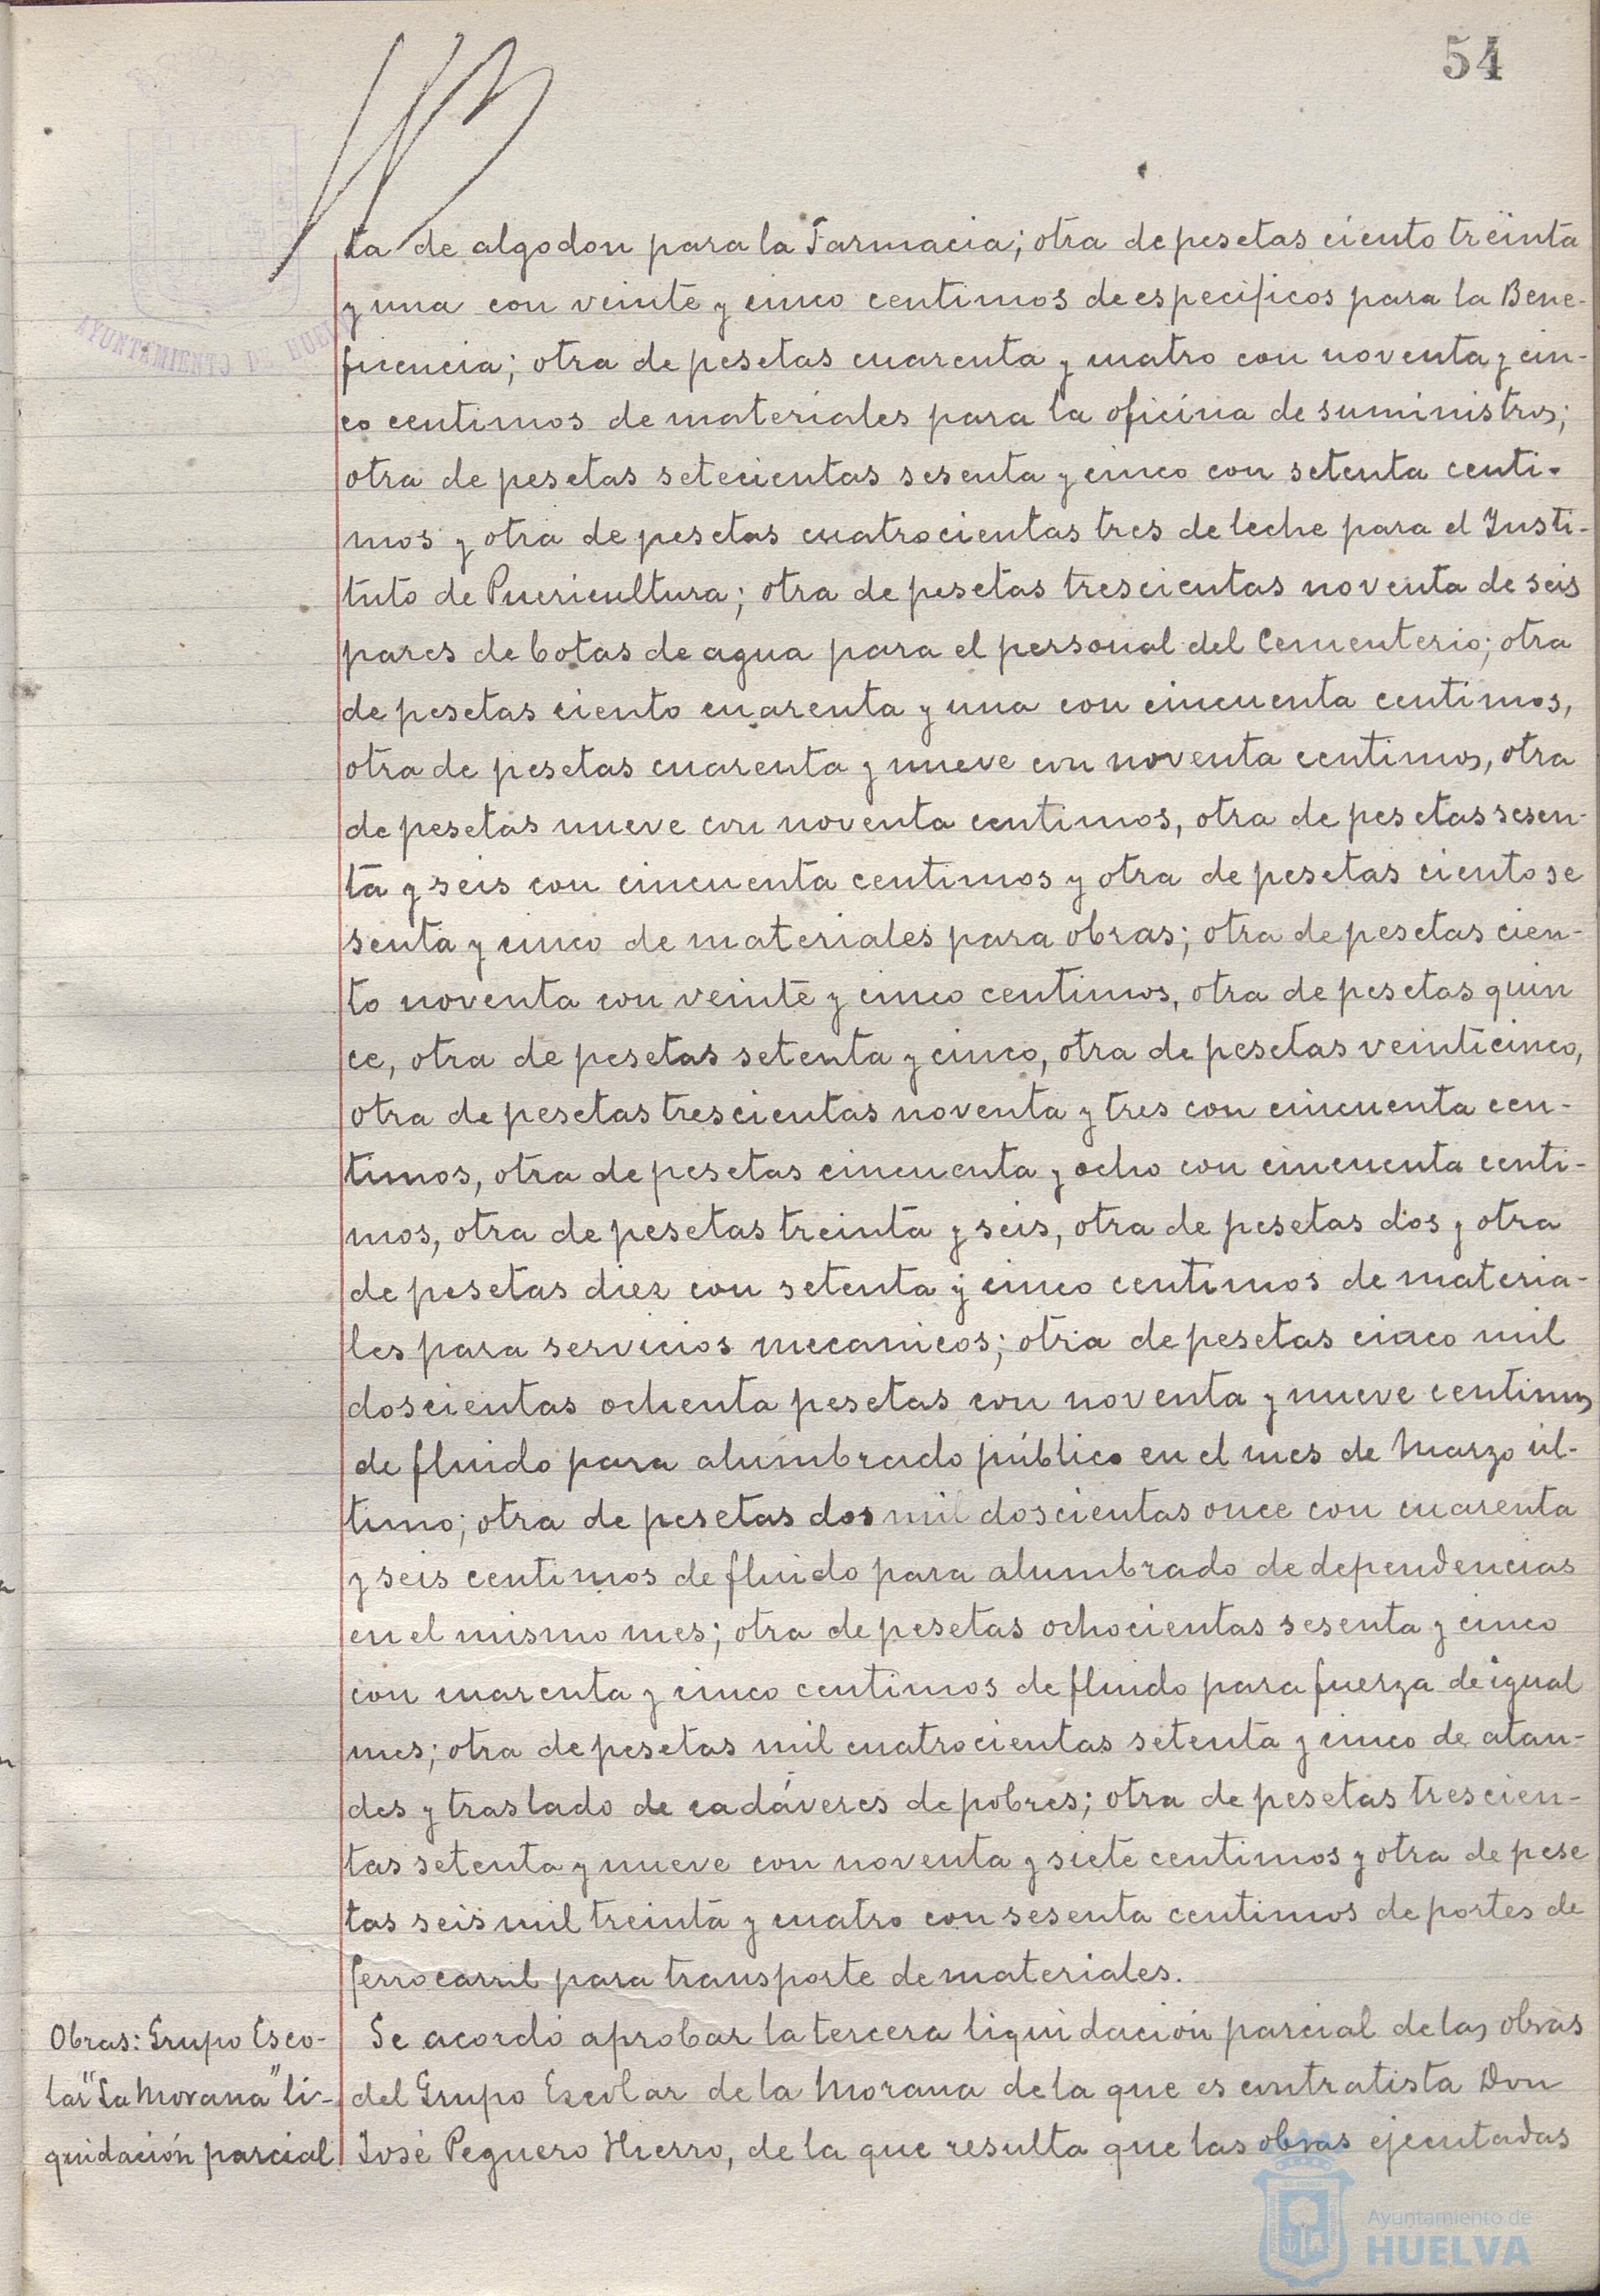 54
AYUNTAMIENTO DE HUELVA
ta de algodon para la Farmacia; otra de pesetas ciento treinta
y una con veinte y cinco centimos de especificos para la Bene-
ficencia; otra de pesetas cuarenta y cuatro con noventa y cin-
co centimos de materiales para la oficina de suministros;
otra de pesetas setecientas sesenta y cinco con setenta centi-
mos y otra de pesetas cuatrocientas tres de leche para el Insti-
tuto de Puericultura; otra de pesetas trescientas noventa de seis
pares de botas de agua para el personal del Cementerio; otra
de pesetas ciento cuarenta y una con cincuenta centimos,
otra de pesetas cuarenta y nueve con noventa centimos, otra
de pesetas nueve con noventa centimos, otra de pesetas sesen-
ta y seis con cincuenta centimos y otra de pesetas ciento se
senta y cinco de materiales para obras; otra de pesetas cien-
to noventa con veinte y cinco centimos, otra de pesetas quin
ce, otra de pesetas setenta y cinco, otra de pesetas veinticinco,
otra de pesetas trescientas noventa y tres con cincuenta cen-
timos, otra de pesetas cincuenta y ocho con cincuenta centi-
mos, otra de pesetas treinta y seis, otra de pesetas dos y otra
de pesetas diez con setenta y cinco centimos de materia-
les para servicios mecanicos; otra de pesetas cinco mil
doscientas ochenta pesetas con noventa y nueve centimos
de fluido para alumbrado público en el mes de Marzo úl-
timo; otra de pesetas dos mil doscientas once con cuarenta
y seis centimos de fluido para alumbrado de dependencias
en el mismo mes; otra de pesetas ochocientas sesenta y cinco
con cuarenta y cinco centimos de fluido para fuerza de igual
mes; otra de pesetas mil cuatrocientas setenta y cinco de atau-
des y traslado de cadáveres de pobres; otra de pesetas trescien-
tas setenta y nueve con noventa y siete centimos y otra de pese
tas seis mil treinta y cuatro con sesenta centimos de portes de
ferrocarril para transporte de materiales.
Obras: Grupo Esco-
lar "La Morana" li-
quidación parcial
Se acordó aprobar la tercera liquidación parcial de las obras
del Grupo Escolar de la Morana de la que es contratista Don
José Peguero Hierro, de la que resulta que las obras ejecutadas
Ayuntamiento de
HUELVA